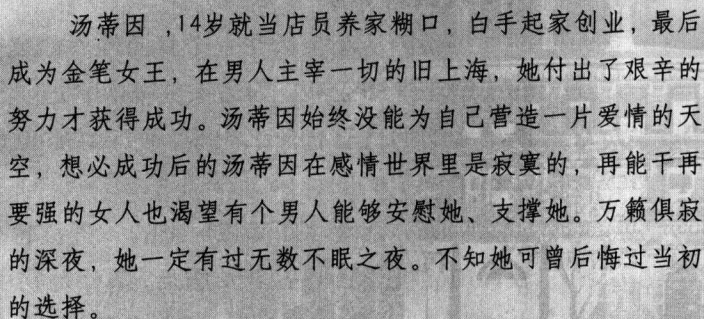 汤蒂因 ,14岁就当店员养家糊口，白手起家创业，最后
成为金笔女王，在男人主宰一切的旧上海，她付出了艰辛的
努力才获得成功。汤蒂因始终没能为自己营造一片爱情的天
空，想必成功后的汤蒂因在感情世界里是寂寞的，再能干再
要强的女人也渴望有个男人能够安慰她、支撑她。万籁俱寂
的深夜，她一定有过无数不眠之夜。不知她可曾后悔过当初
的选择。